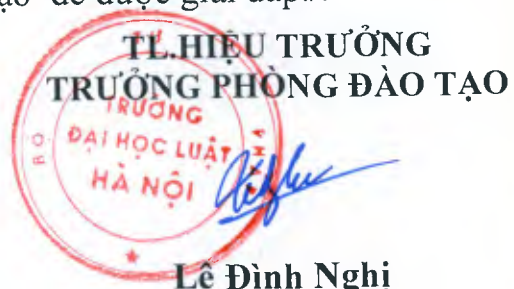 để được giải đáp
TL.HIỆU TRƯỞNG
TRƯỞNG PHÒNG ĐÀO TẠO
TRƯỜNG
ĐẠI HỌC LUẬT
HÀ NỘI
BỘ
Lê Đình Nghị